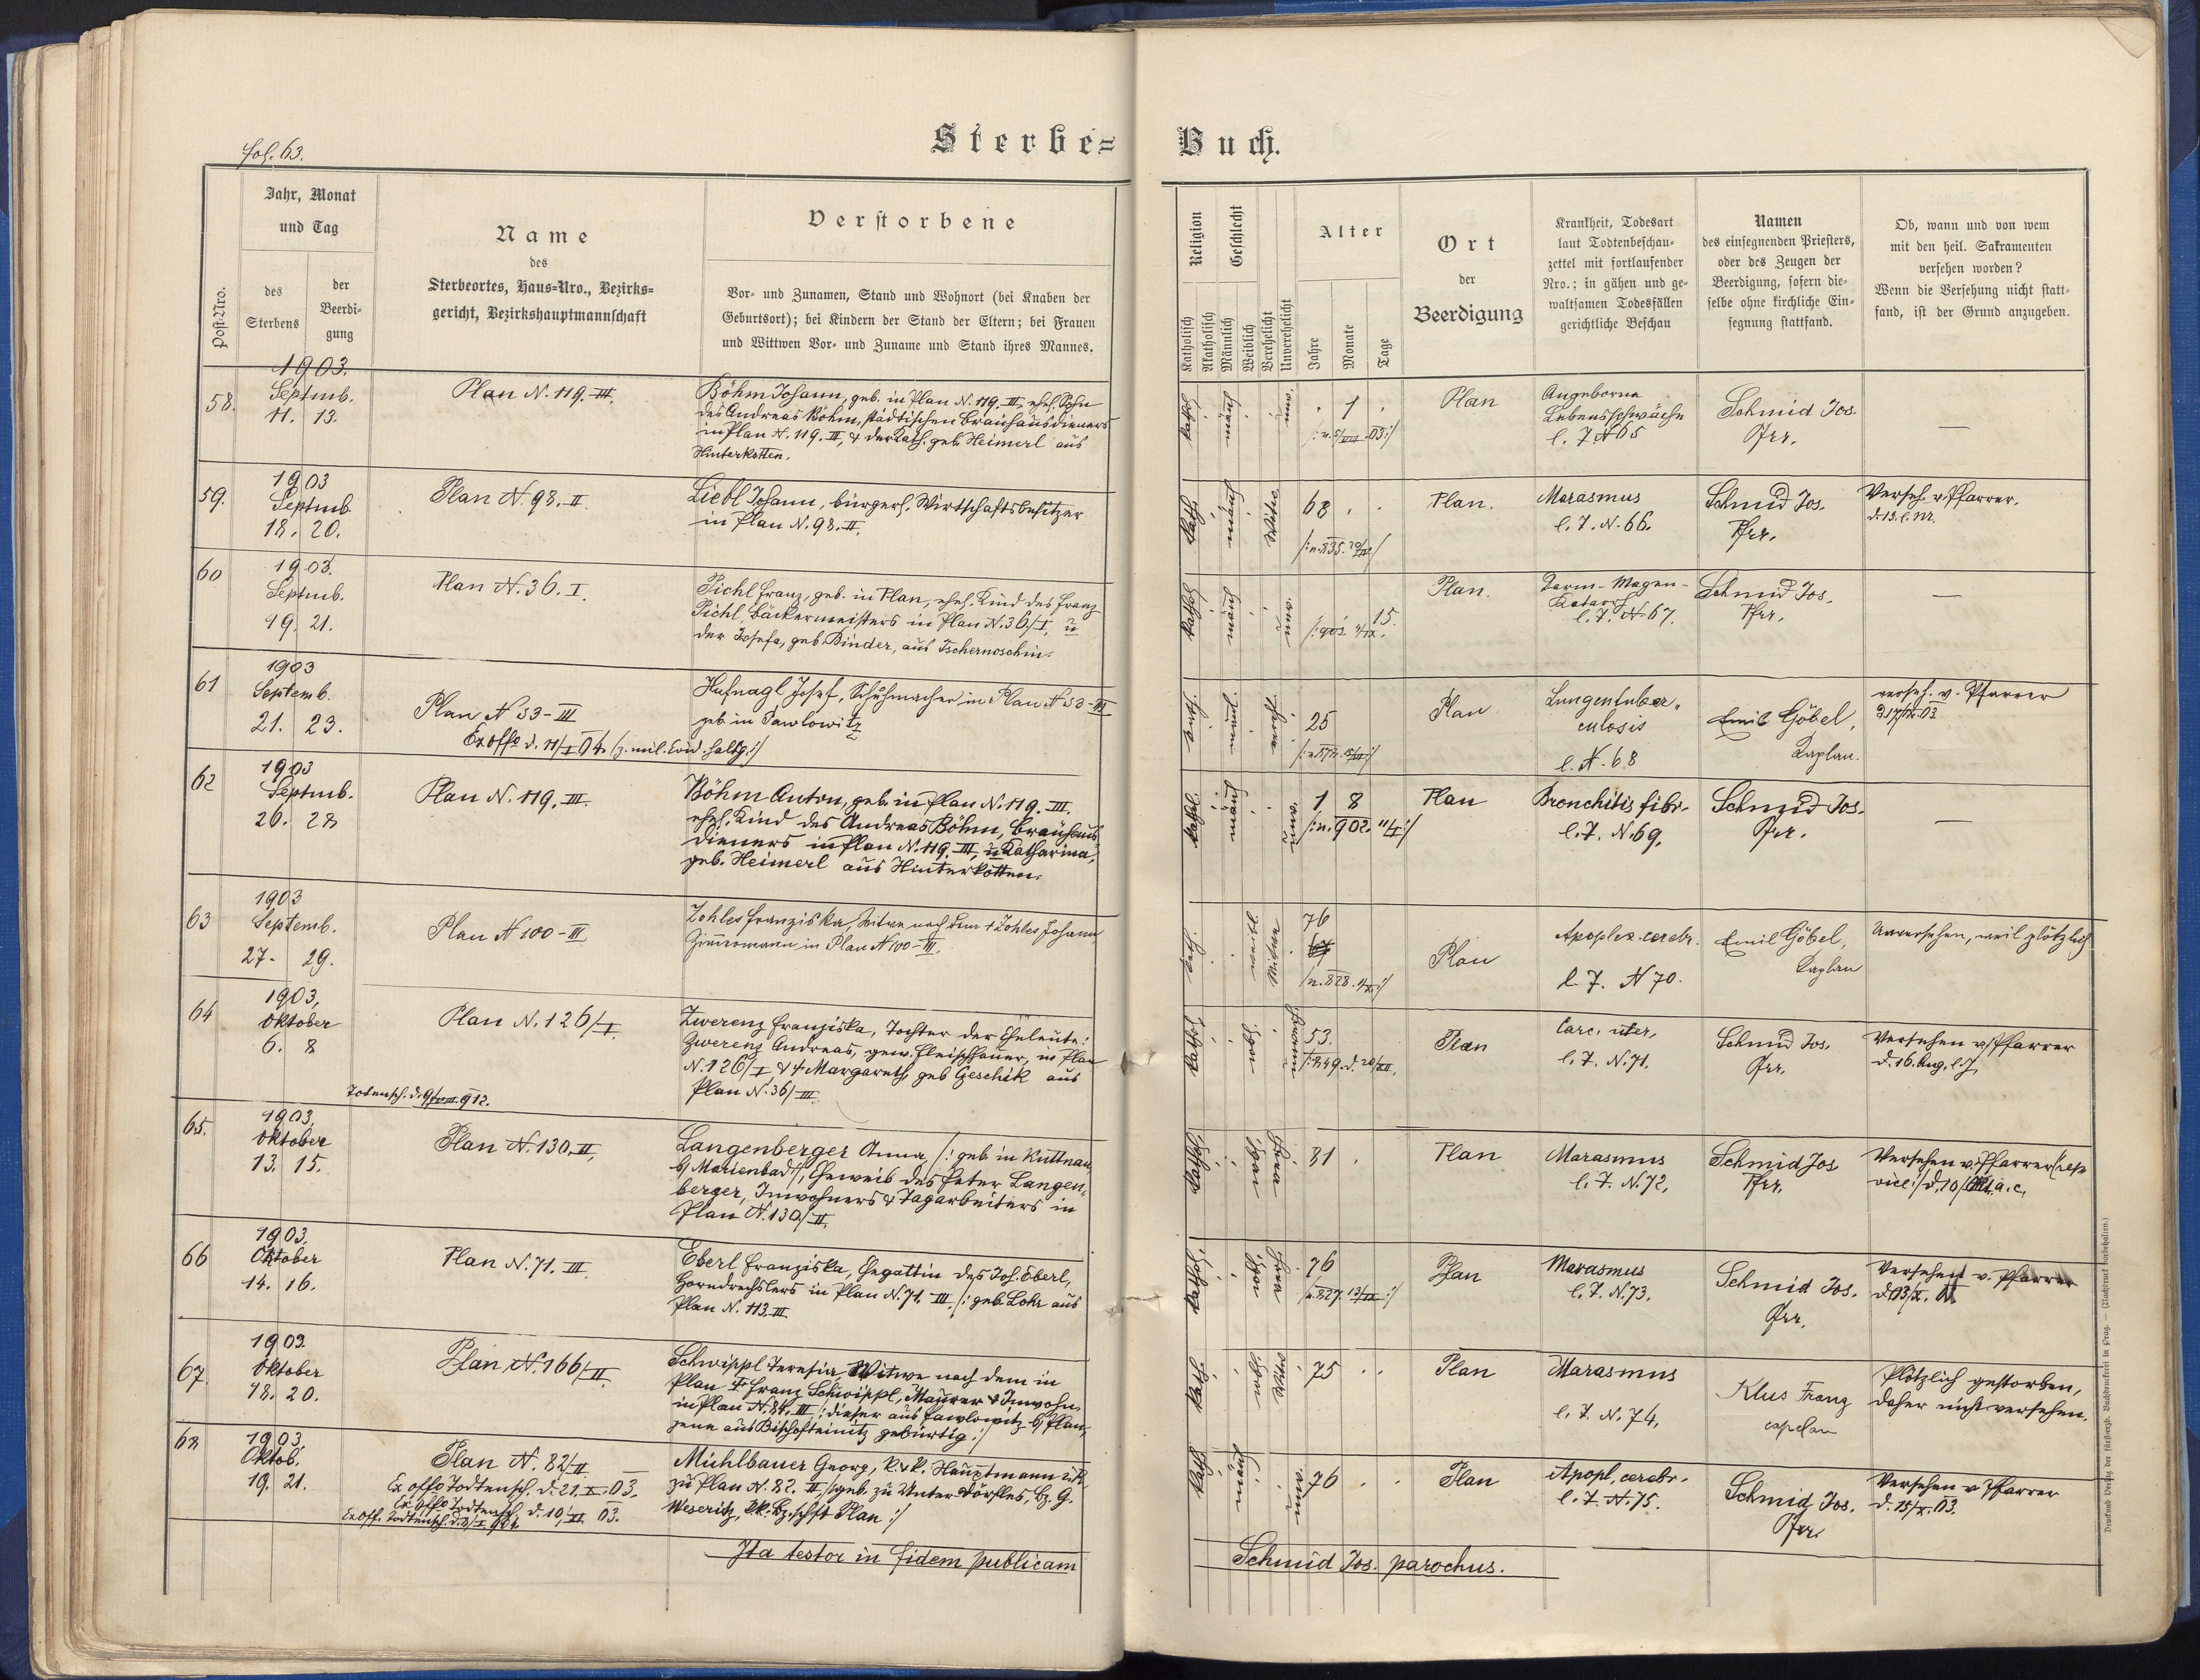 fol. 63.
Sterbe=Buch.
Post-Nro.
Jahr, Monat
und Tag
des
Sterbens
der
Beerdi-
gung
Name
des
Sterbeortes, Haus=Nro., Bezirks=
gericht, Bezirkshauptmannschaft
Verstorbene
Vor- und Zunamen, Stand und Wohnort (bei Knaben der
Geburtsort); bei Kindern der Stand der Eltern; bei Frauen
und Wittwen Vor- und Zuname und Stand ihres Mannes.
Religion
Katholisch
Akatholisch
Geschlecht
Männlich
Weiblich
Verehelicht
Unverehelicht
Alter
Jahre
Monate
Tage
Ort
der
Beerdigung
Krankheit, Todesart
laut Todtenbeschau-
zettel mit fortlaufender
Nro.; in gähen und ge-
waltsamen Todesfällen
gerichtliche Beschau
Namen
des einsegnenden Priesters,
oder des Zeugen der
Beerdigung, sofern die-
selbe ohne kirchliche Ein-
segnung stattfand.
Ob, wann und von wem
mit den heil. Sakramenten
versehen worden?
Wenn die Versehung nicht statt-
fand, ist der Grund anzugeben.
58.
1903.
Septmb.
11. 13.
Plan N. 119. III.
Böhm Johann, geb. in Plan N. 119. III, ehel. Sohn
des Andreas Böhm, städtischen Brauhausdieners
in Plan N. 119. III, & der Kath. geb. Heimerl aus
Hinterkotten.
kathol.
männ
1
Plan
Angeborne
Lebensschwäche
l. Z. N 65
Schmid Jos.
Pfr.
—
59.
1903
Septmb
18. 20.
Plan N. 98. II.
Liebl Johann, bürgerl. Wirtschaftsbesitzer
in Plan N. 98. II.
kath
männ
Witwe
68
/: n. 835.
Plan.
Marasmus
l. Z. N. 66.
Schmid Jos.
Pfr.
Verseh. v. Pfarrer.
60
1903.
Septmb.
19. 21.
Plan N. 36. I.
Pichl Franz, geb. in Plan, ehel. Kind des Franz
Pichl, Bäckermeisters in Plan N. 36/I, u
der Josefa, geb. Binder, aus Tschernoschin.
kathol
männ
15.
Plan.
Darm-Magen-
Katarrh
l. Z. N. 67.
Schmid Jos.
Pfr.
—
61
1903
Septemb.
21. 23.
Plan N 53-III
Ex offo d. 11/I 04 /z. mil. Evid. haltg.:/
Hufnagl Josef, Schuhmacher in Plan N 53-III
geb. in Pawlowitz
25
Plan
Lungentuber„
culosis
l. N. 68
Emil Göbel,
Kaplan.
verseh. v. Pfarrer
d 17/IX. 03
62
1903
Septmb.
26. 28
Plan N. 119. III.
Böhm Anton, geb. in Plan N. 119. III.
ehel. Kind des Andreas Böhm, Brauhaus
dieners in Plan N. 119. III, u Katharina,
geb. Heimerl aus Hinterkotten.
kathol
männ
1 8
/: n. 902. 11/4:/
Plan
Bronchitis fibr.
l. Z. N. 69.
Schmid Jos.
Pfr.
—
63
1903
Septemb.
27. 29.
Plan N 100-III
Zohles Franziska, Witwe nach dem † Zohles Johann
Zimmermann in Plan N 100-III.
Witwe
76
67
Plan
Apoplex. cerebr.
l. Z. N 70.
Emil Göbel,
Kaplan
Unversehen, weil plötzlich
64
1903,
Oktober
6. 8
Plan N. 126/I
Todensch. d. 9/VIII 912.
Zwerenz Franziska, Tochter der Eheleute:
Zwerenz Andreas, gew. Fleischhauer, in Plan
N. 126/I & † Margareth, geb Geschik aus
Plan N. 36/III.
53.
Plan
Carc. uter,
l. Z. N. 71.
Schmid Jos.
Pfr.
Versehen v. Pfarrer
d. 16. Aug. l. J
65.
1903,
Oktober
13. 15.
Plan N. 130. II,
Langenberger Anna, /: geb. in Kuttnau
b/ Marienbad:/, Eheweib des Peter Langen„
berger, Inwohners & Tagarbeiters in
Plan N. 130/II.
81
Plan
Marasmus
l. Z. N. 72,
Schmid Jos
Pfr.
Versehen v. Pfarrer
vice:/ d. 10/ Okt. a. c.
66
1903.
Oktober
14. 16.
Plan N. 71. III.
Eberl Franziska, Ehegattin des Jos. Eberl,
Horndrechslers in Plan N. 71. III. /: geb. Lohr aus
Plan N. 113. III
76
/: n. 827.
Plan
Marasmus
l. Z. N. 73.
Schmid Jos.
Pfr.
Versehen v. Pfarrer
67
1903
Oktober
18. 20.
Plan N. 166/II.
Schwippl Teresia, Witwe nach dem in
Plan † Franz Schwippl, Maurer & Inwohn.
in Plan N. 84. III /: dieser aus Pawlowitz b/ Plan,
jene aus Bischofteinitz gebürtig:/
75
Plan
Marasmus
l. Z. N. 74.
Klus Franz
caplan
Plötzlich gestorben,
daher nicht versehen.
68
1903
Oktob.
19. 21.
Plan N. 82/II
Ex offo Todtensch. d. 21. X. 03.
Ex offo Todtensch. d. 10/XI 03.
Ex off. Todtensch. d.
Mühlbauer Georg, k. & k. Hauptmann
zu Plan N. 82. II, /: geb. zu Unter Dörfles, Bz. G.
Weseritz, Bk. Bz. schft Plan:/
kath.
männ
76
Plan
Apopl. cerebr.
l. Z. N. 75.
Schmid Jos.
Pfr.
Versehen v Pfarrer
d. 15/X. 03.
Ita testor in fidem publicam
Schmid Jos. parochus.
Druck und Verlag der fürsterzb. Buchdruckerei in Prag. — (Nachdruck vorbehalten.)